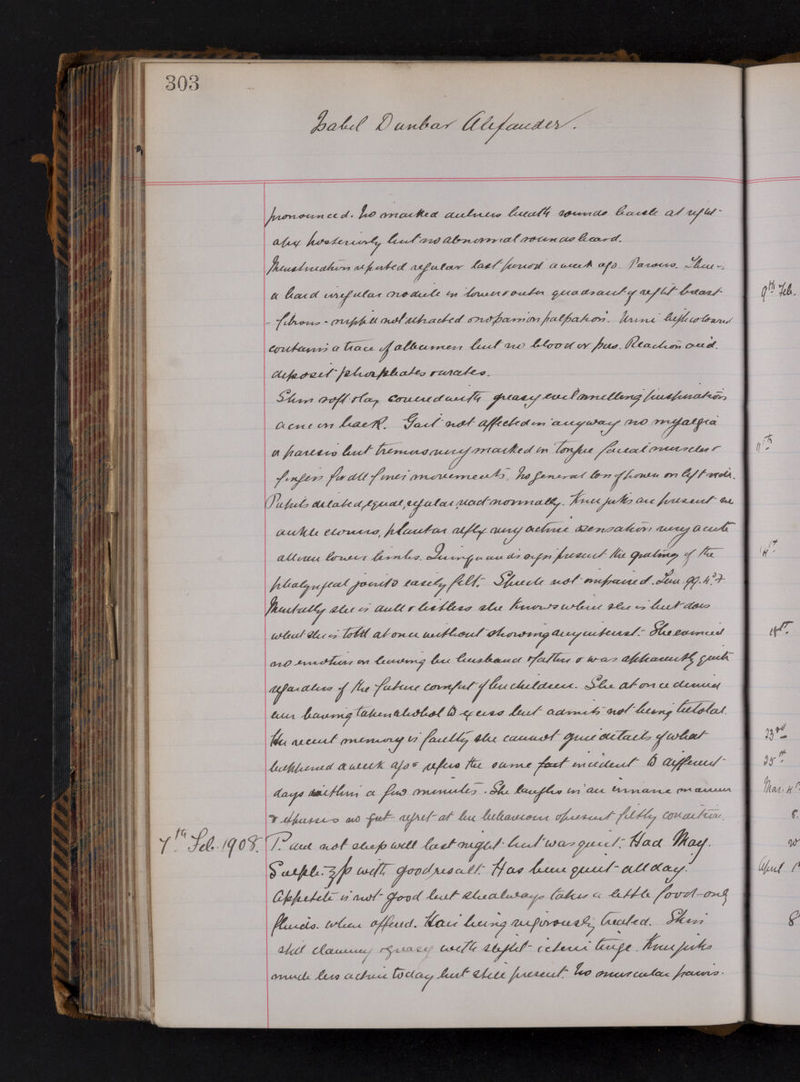 303
Isabel Dunbar Alexander.
pronounced. No marked dulness breath sounds harsh at right
apex posteriorly but no abnormal sounds heard.
Menstruation reported regular last period a week ago. Parous. There is
a hard irregular nodule in lower outer quadrant of right breast
- fibrous - nipple not retracted & no pain on palpation. Urine high coloured
contains a trace of albumen but no blood or pus. Reaction acid.
deposit phosphates & urates.
Skin soft & lax covered with greasy evil smelling perspiration
acne on back. Gait not affected in anyway no myalgia
or paresis but tremors very marked in tongue facial muscles &
fingers for all finer movements. No general loss of power on left side.
Pupils dilated, equal, regular, react normally. Knee jerks are present
ankle clonus, plantar reflex very active & sensation very acute
all over lower limbs. Quinquaud's sign present the grating of the
phalyngeal joints easily felt. Speech not impaired.
Mentally she is dull & listless she knows where she is but does
what she is told at once without showing any interest. She evinced
no emotion on leaving her husband & father & was apparently quite
regardless of the future comfort of her children. She at once denied
ever having taken alcohol to excess but admits not being teetotal.
Her recent memory is faulty she cannot give details of what
happened a week ago & refers the same fact incident to different
days within a few minutes. She laughs in an inane manner
& expresses no regret at her behaviour or present filthy condition.
7th Feb. 1908. P. did not sleep well last night but was quiet. Had Mag.
Sulph. with good result. Has been quiet all day.
Appetite is not good but she always takes a little food - only
fluids. when offered. Hair being vigorously treated. Skin
still clammy & greasy with slight icteric tinge. Knee jerks
much less active today but still present. No muscular pains.
9th Feb.
11th
14th
18th
23rd
25th
Mar. 4th
8
20
April 1st
8